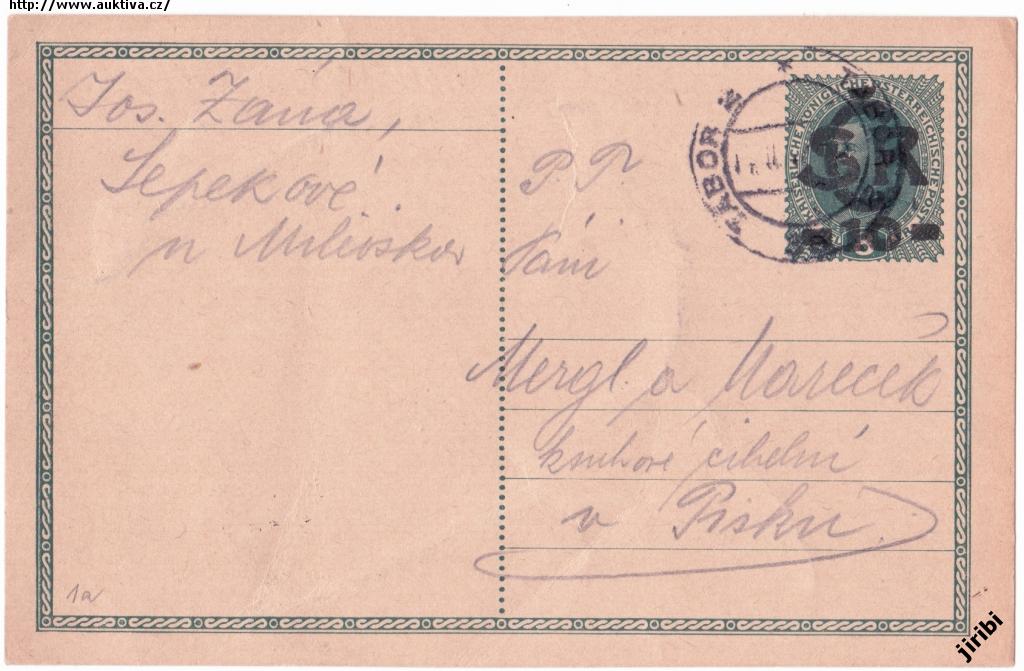 http://www.auktiva.cz/
Jos. Zána,
Sepekově
u Milevska
P. T.
Páni
Mergl a Mareček
v Písku
TÁBOR
KAISERLICHE KÖNIGLICHE ÖSTERREICHISCHE POST
ČSR
10
1a
jiribi